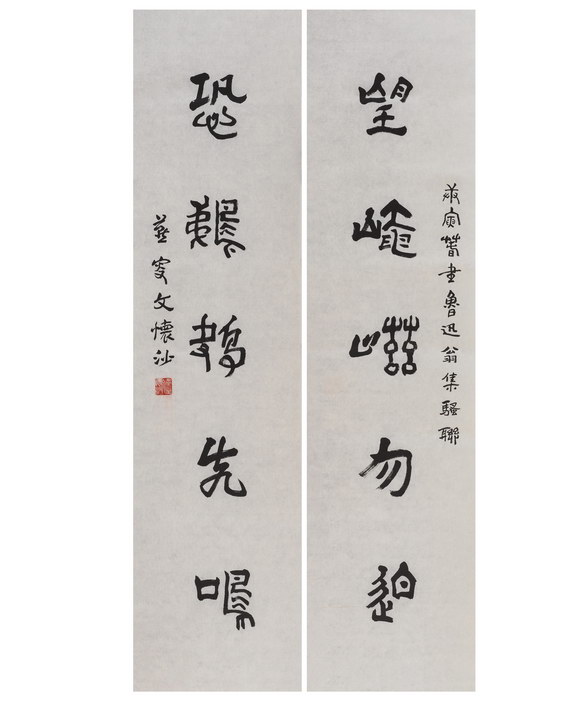 庚寅書魯迅翁集騷聯
望崦嵫勿迫
恐鵜鴂先鳴
燕叟文懷沙